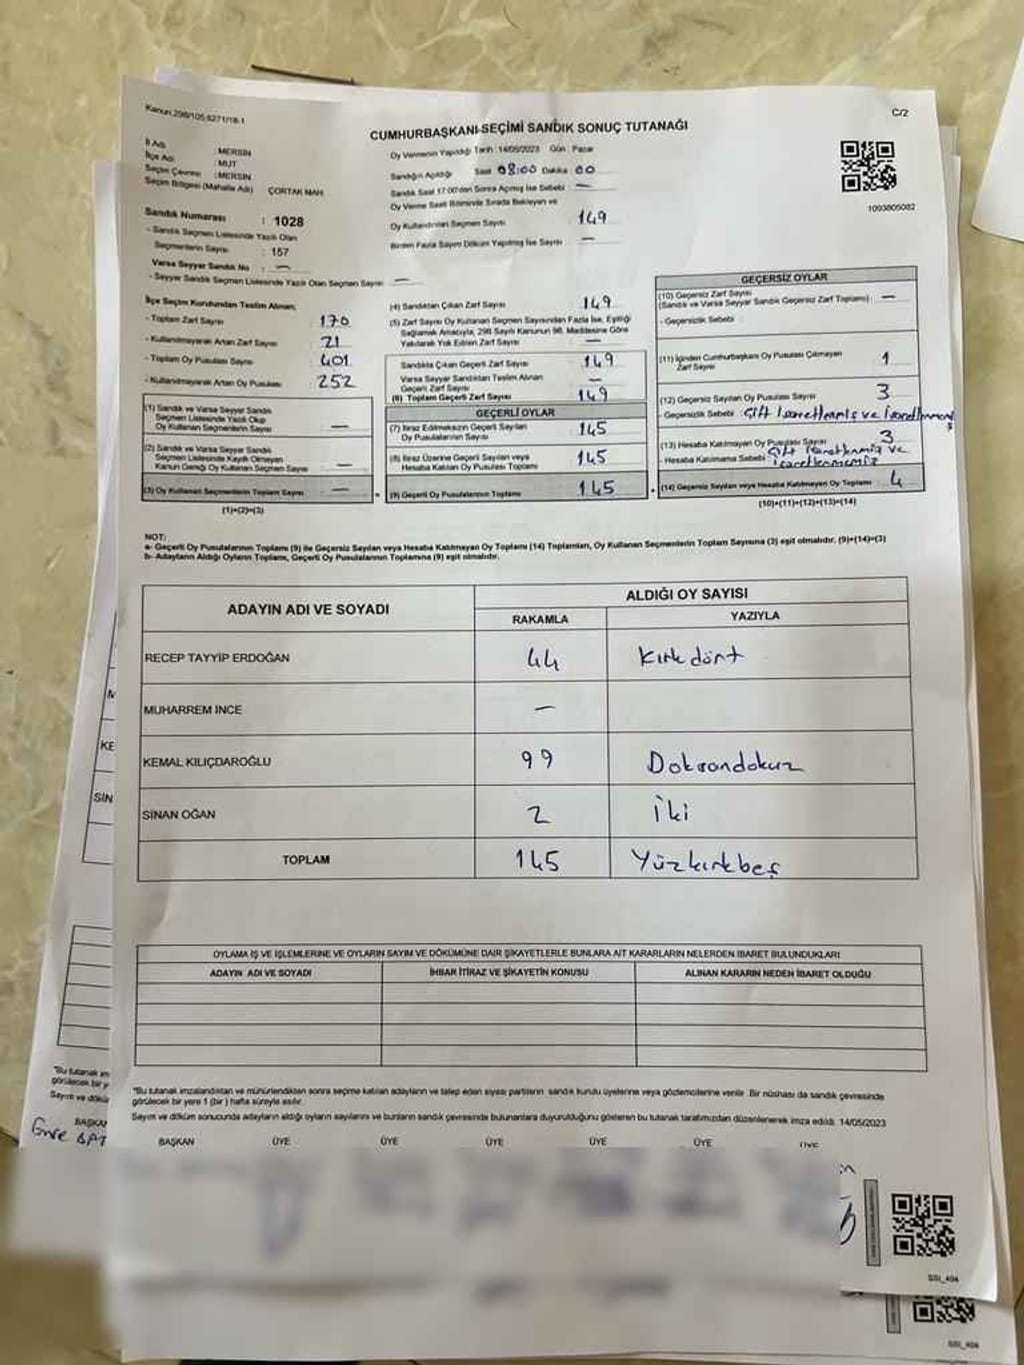 Kanun:298/105;6271/18-1
C/2
CUMHURBAŞKANI SEÇİMİ SANDIK SONUÇ TUTANAĞI
İl Adı : MERSİN
İlçe Adı : MUT
Seçim Çevresi : MERSİN
Seçim Bölgesi (Mahalle Adı) ÇORTAK MAH.
Sandık Numarası : 1028
- Sandık Seçmen Listesinde Yazılı Olan
Seçmenlerin Sayısı : 157
Varsa Seyyar Sandık No : —
- Seyyar Sandık Seçmen Listesinde Yazılı Olan Seçmen Sayısı : —
Oy Vermenin Yapıldığı Tarih : 14/05/2023 Gün : Pazar
Sandığın Açıldığı Saat 08:00 Dakika : 00
Sandık Saat 17:00'dan Sonra Açılmış İse Sebebi : —
Oy Verme Saati Bitiminde Sırada Bekleyen ve
Oy Kullandırılan Seçmen Sayısı : 149
Birden Fazla Sayım Döküm Yapılmış İse Sayısı : —
1093805082
İlçe Seçim Kurulundan Teslim Alınan;
- Toplam Zarf Sayısı : 170
- Kullanılmayarak Artan Zarf Sayısı : 21
- Toplam Oy Pusulası Sayısı : 401
- Kullanılmayarak Artan Oy Pusulası : 252
(1) Sandık ve Varsa Seyyar Sandık
Seçmen Listesinde Yazılı Olup
Oy Kullanan Seçmenlerin Sayısı : —
(2) Sandık ve Varsa Seyyar Sandık
Seçmen Listesinde Kaydı Olmayan
Kanun Gereği Oy Kullanan Seçmen Sayısı : —
(3) Oy Kullanan Seçmenlerin Toplam Sayısı : —
(1)+(2)=(3)
(4) Sandıktan Çıkan Zarf Sayısı : 149
(5) Zarf Sayısı Oy Kullanan Seçmen Sayısından Fazla İse, Eşitliği
Sağlamak Amacıyla, 298 Sayılı Kanunun 98. Maddesine Göre
Yakılarak Yok Edilen Zarf Sayısı : —
Sandıkta Çıkan Geçerli Zarf Sayısı : 149
Varsa Seyyar Sandıktan Teslim Alınan
Geçerli Zarf Sayısı : —
(6) Toplam Geçerli Zarf Sayısı : 149
GEÇERLİ OYLAR
(7) İtiraz Edilmeksizin Geçerli Sayılan
Oy Pusulalarının Sayısı : 145
(8) İtiraz Üzerine Geçerli Sayılan veya
Hesaba Katılan Oy Pusulası Toplamı : 145
(9) Geçerli Oy Pusulalarının Toplamı : 145
GEÇERSİZ OYLAR
(10) Geçersiz Zarf Sayısı
(Sandık ve Varsa Seyyar Sandık Geçersiz Zarf Toplamı) : —
- Geçersizlik Sebebi :
(11) İçinden Cumhurbaşkanı Oy Pusulası Çıkmayan
Zarf Sayısı : 1
(12) Geçersiz Sayılan Oy Pusulası Sayısı : 3
- Geçersizlik Sebebi : Çift İşaretlenmiş ve İşaretlenmemiş
(13) Hesaba Katılmayan Oy Pusulası Sayısı : 3
- Hesaba Katılmama Sebebi : Çift İşaretlenmiş ve
işaretlenmemiş
(14) Geçersiz Sayılan veya Hesaba Katılmayan Oy Toplamı : 4
(10)+(11)+(12)+(13)=(14)
NOT:
a- Geçerli Oy Pusulalarının Toplamı (9) ile Geçersiz Sayılan veya Hesaba Katılmayan Oy Toplamı (14) Toplamları, Oy Kullanan Seçmenlerin Toplam Sayısına (3) eşit olmalıdır. (9)+(14)=(3)
b- Adayların Aldığı Oyların Toplamı, Geçerli Oy Pusulalarının Toplamına (9) eşit olmalıdır.
ADAYIN ADI VE SOYADI ALDIĞI OY SAYISI
RAKAMLA YAZIYLA
RECEP TAYYİP ERDOĞAN 44 Kırkdört
MUHARREM İNCE —
KEMAL KILIÇDAROĞLU 99 Doksandokuz
SİNAN OĞAN 2 İki
TOPLAM 145 Yüzkırkbeş
OYLAMA İŞ VE İŞLEMLERİNE VE OYLARIN SAYIM VE DÖKÜMÜNE DAİR ŞİKAYETLERLE BUNLARA AİT KARARLARIN NELERDEN İBARET BULUNDUKLARI
ADAYIN ADI VE SOYADI İHBAR İTİRAZ VE ŞİKAYETİN KONUSU ALINAN KARARIN NEDEN İBARET OLDUĞU
*Bu tutanak imzalandıktan ve mühürlendikten sonra seçime katılan adayların ve talep eden siyasi partilerin sandık kurulu üyelerine veya gözlemcilerine verilir. Bir nüshası da sandık çevresinde
görülecek bir yere 1 (bir) hafta süreyle asılır.
Sayım ve döküm sonucunda adayların aldığı oyların sayılarını ve bunların sandık çevresinde bulunanlara duyurulduğunu gösteren bu tutanak tarafımızdan düzenlenerek imza edildi. 14/05/2023
BAŞKAN ÜYE ÜYE ÜYE ÜYE ÜYE ÜYE
SSI_404
KE
SİN
*Bu tutanak im
görülecek bir y
Sayım ve dökü
BAŞKAN
SSI_404